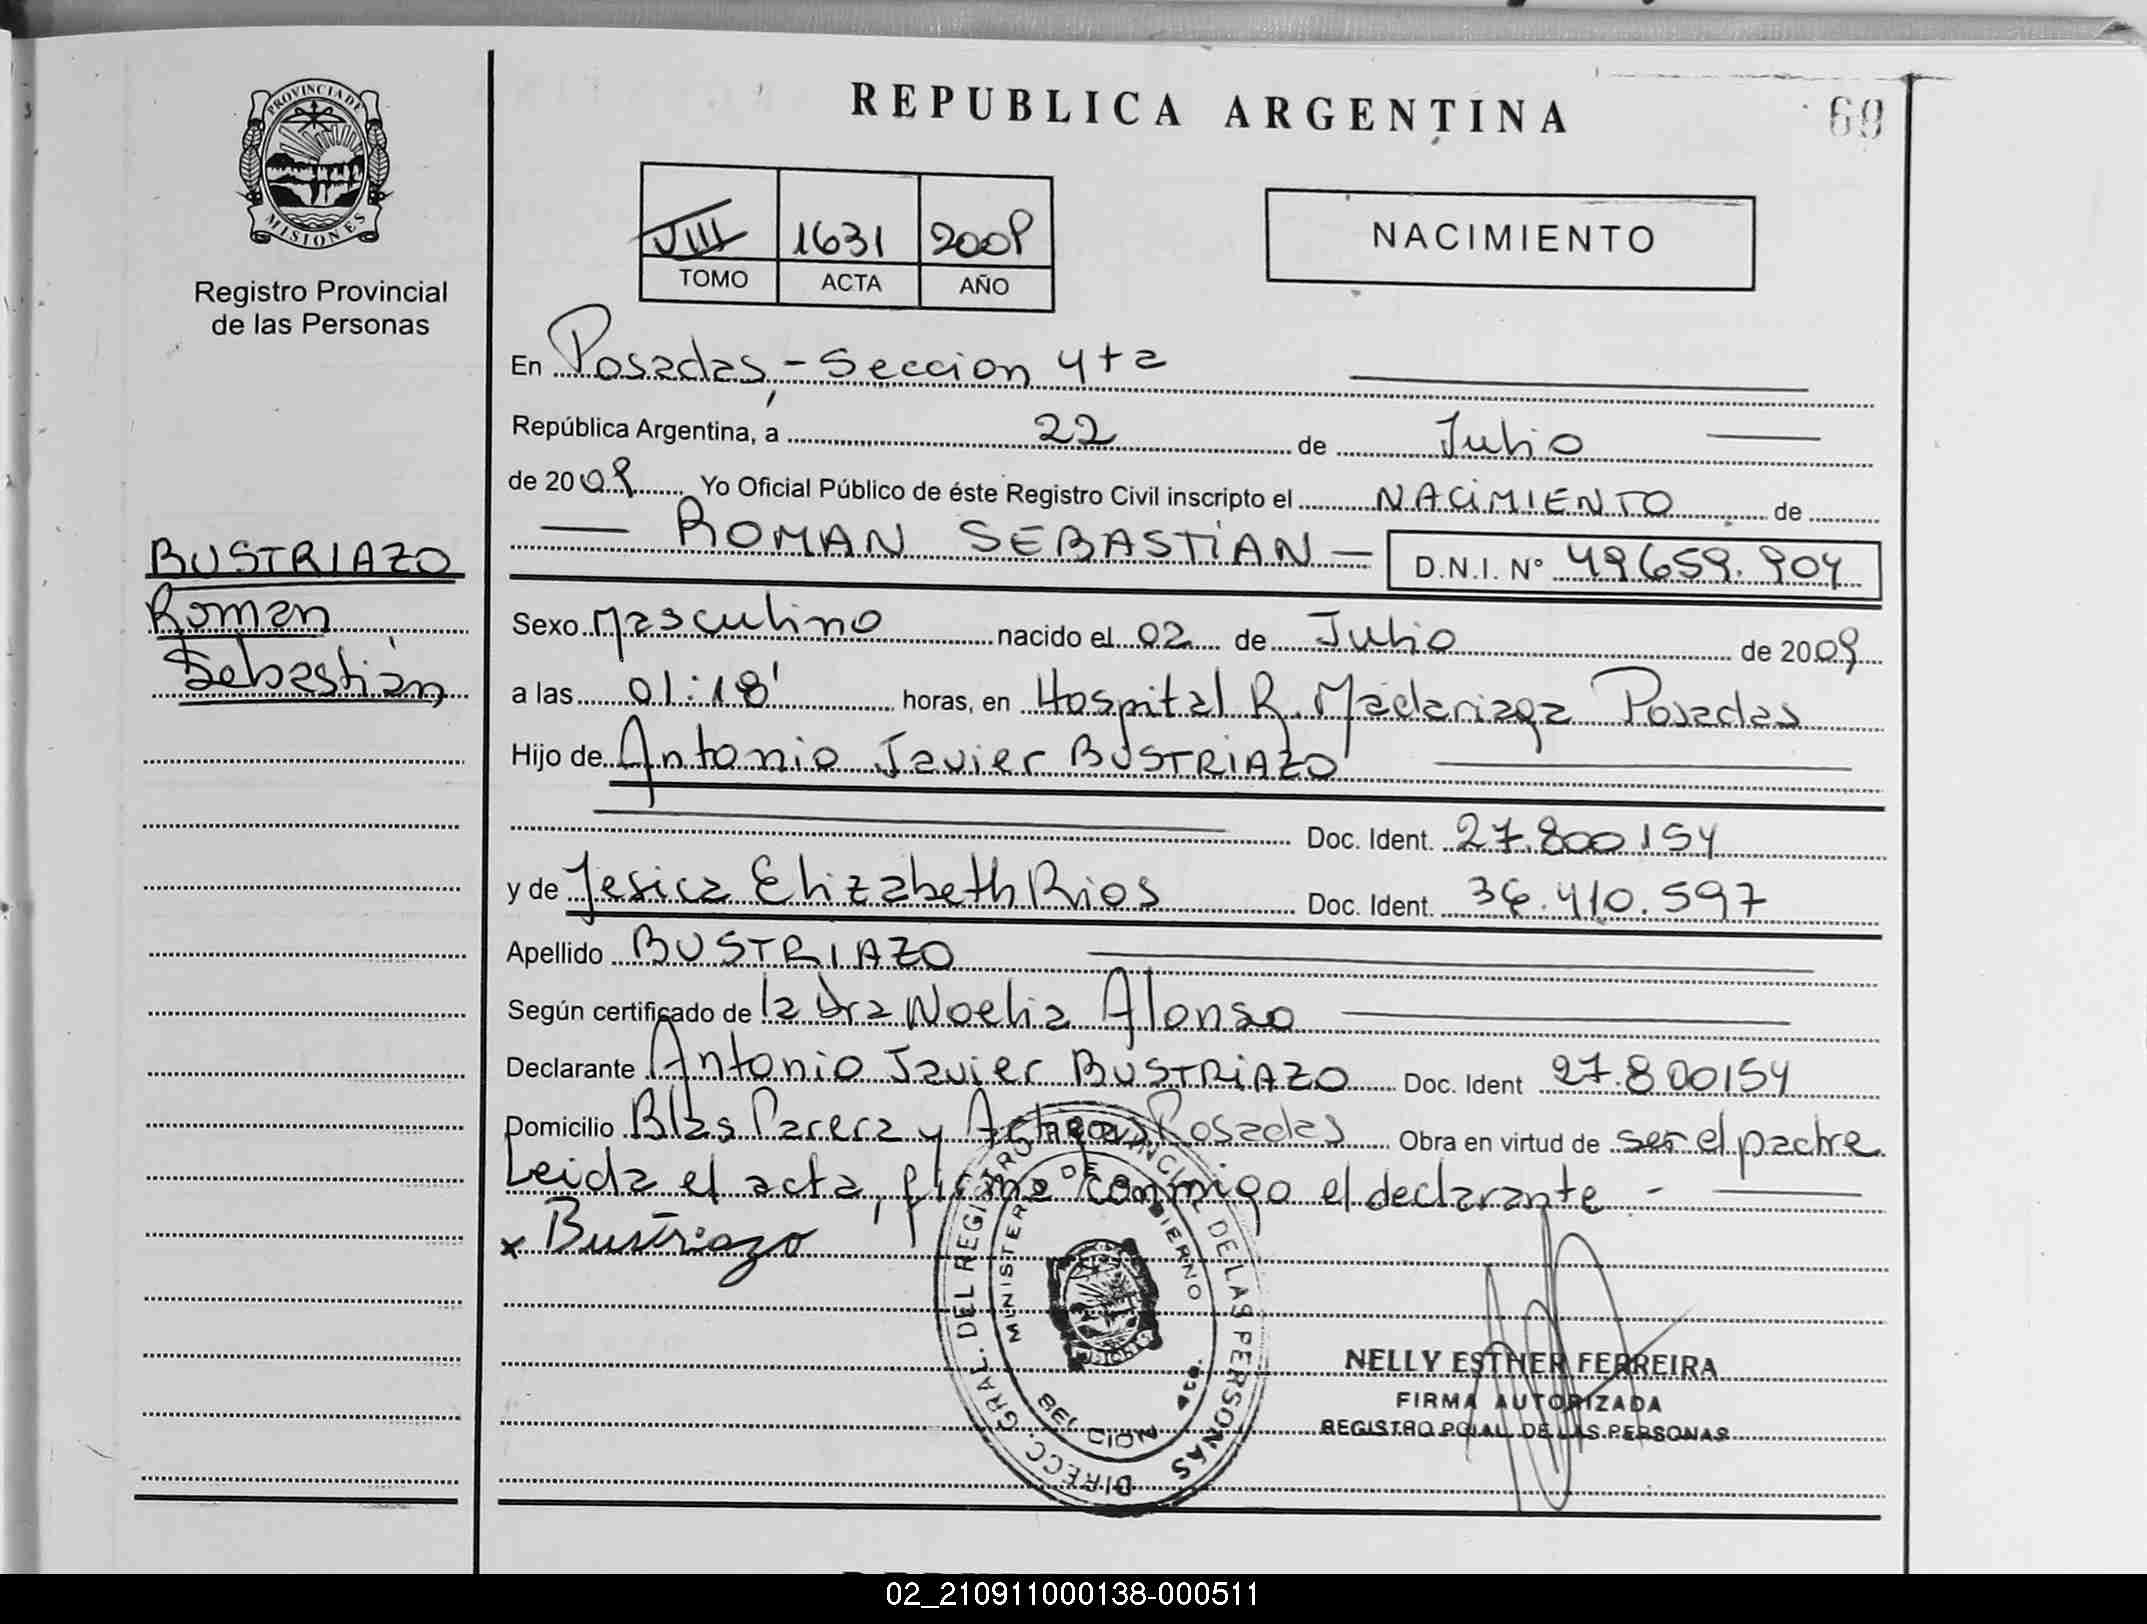 PROVINCIA DE
MISIONES
Registro Provincial
de las Personas
BUSTRIAZO
Roman
Sebastián
REPUBLICA ARGENTINA
69
VIII 1631 2009
TOMO ACTA AÑO
NACIMIENTO
En Posadas, - Seccion 4ta
República Argentina, a 22 de Julio
de 2009 Yo Oficial Público de éste Registro Civil inscripto el NACIMIENTO de
ROMAN SEBASTIAN D.N.I. N° 49659.904
Sexo Masculino nacido el 02 de Julio de 2009
a las 01:18' horas, en Hospital R. Madariaga Posadas
Hijo de Antonio Javier BUSTRIAZO
Doc. Ident. 27.800154
y de Jesica Elizabeth Rios Doc. Ident. 36.410.597
Apellido BUSTRIAZO
Según certificado de la Dra Noelia Alonso
Declarante Antonio Javier BUSTRIAZO Doc. Ident 27.800154
Domicilio Blas Parera y Posadas Obra en virtud de ser el padre
Leida el acta, firma conmigo el declarante -
x Bustriazo
DIRECC. GRAL. DEL REGISTRO PROVINCIAL DE LAS PERSONAS
MINISTERIO DE GOBIERNO
NELLY ESTHER FERREIRA
FIRMA AUTORIZADA
REGISTRO PCIAL DE LAS PERSONAS
02_210911000138-000511